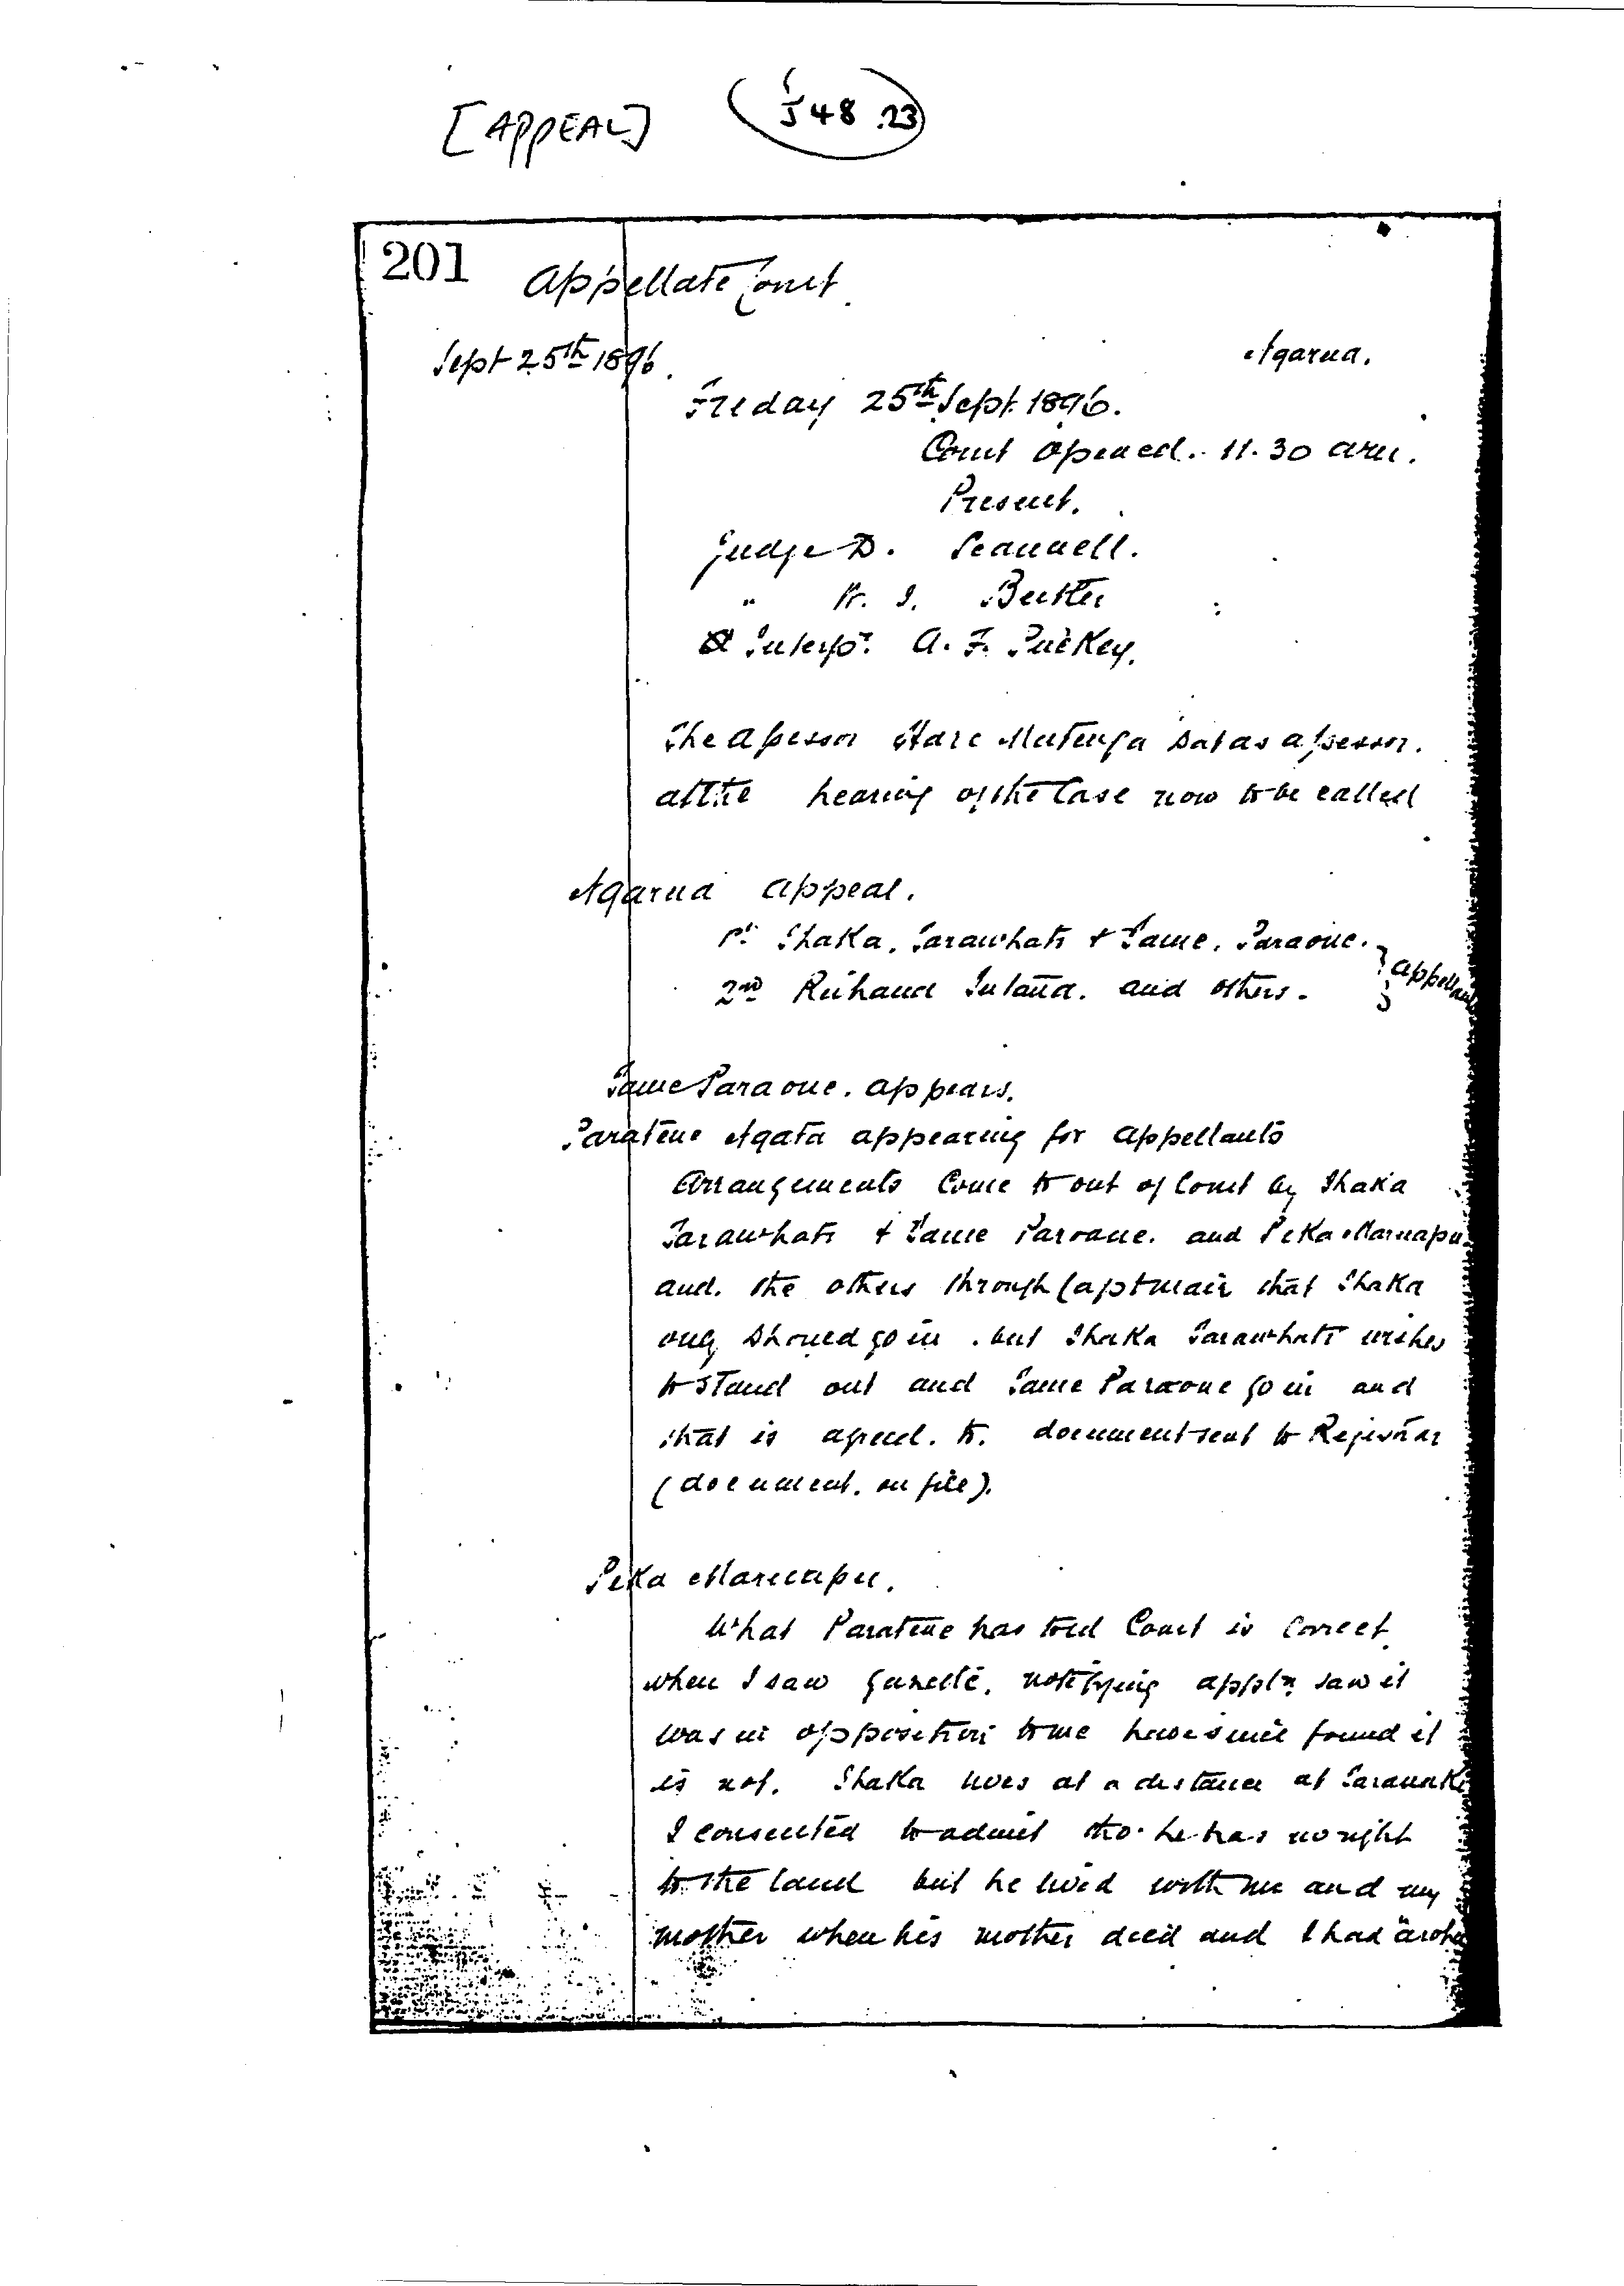 [APPEAL] J48.23
201 Appellate Court.
Sept 25th 1896. Ngarua.
Friday 25th Sept. 1896.
Court opened. 11.30 am.
Present.
Judge D. Scannell.
" W. J. Butler
& Interpr. A. F. Puckey.
The Assessor Hare Matenga sat as assessor.
at the hearing of the Case now to be called
Ngarua appeal.
1st Ihaka. Tarawhati & Tame. Paraone. } appellants
2nd and others.
Tame Paraone. appears.
Paratene Ngata appearing for appellants
Arrangements Come to out of Court by Ihaka
Tarawhati & Tame Paroane. and Peka Maruapu
and. the others through Capt Mair that Ihaka
only should go in. but Ihaka Tarawhati wishes
to stand out and Tame Paraone go in and
that is agreed. to. document sent to Registrar
(document. on file).
Peka Maruapu.
What Paratene has told Court is correct
when I saw gazette. notifying appln saw it
was in opposition to me have since found it
is not. Ihaka lives at a distance at Taranaki
I consented to admit tho. he has no right
to the land but he lived with me and my
mother when his mother died and I had "aroha